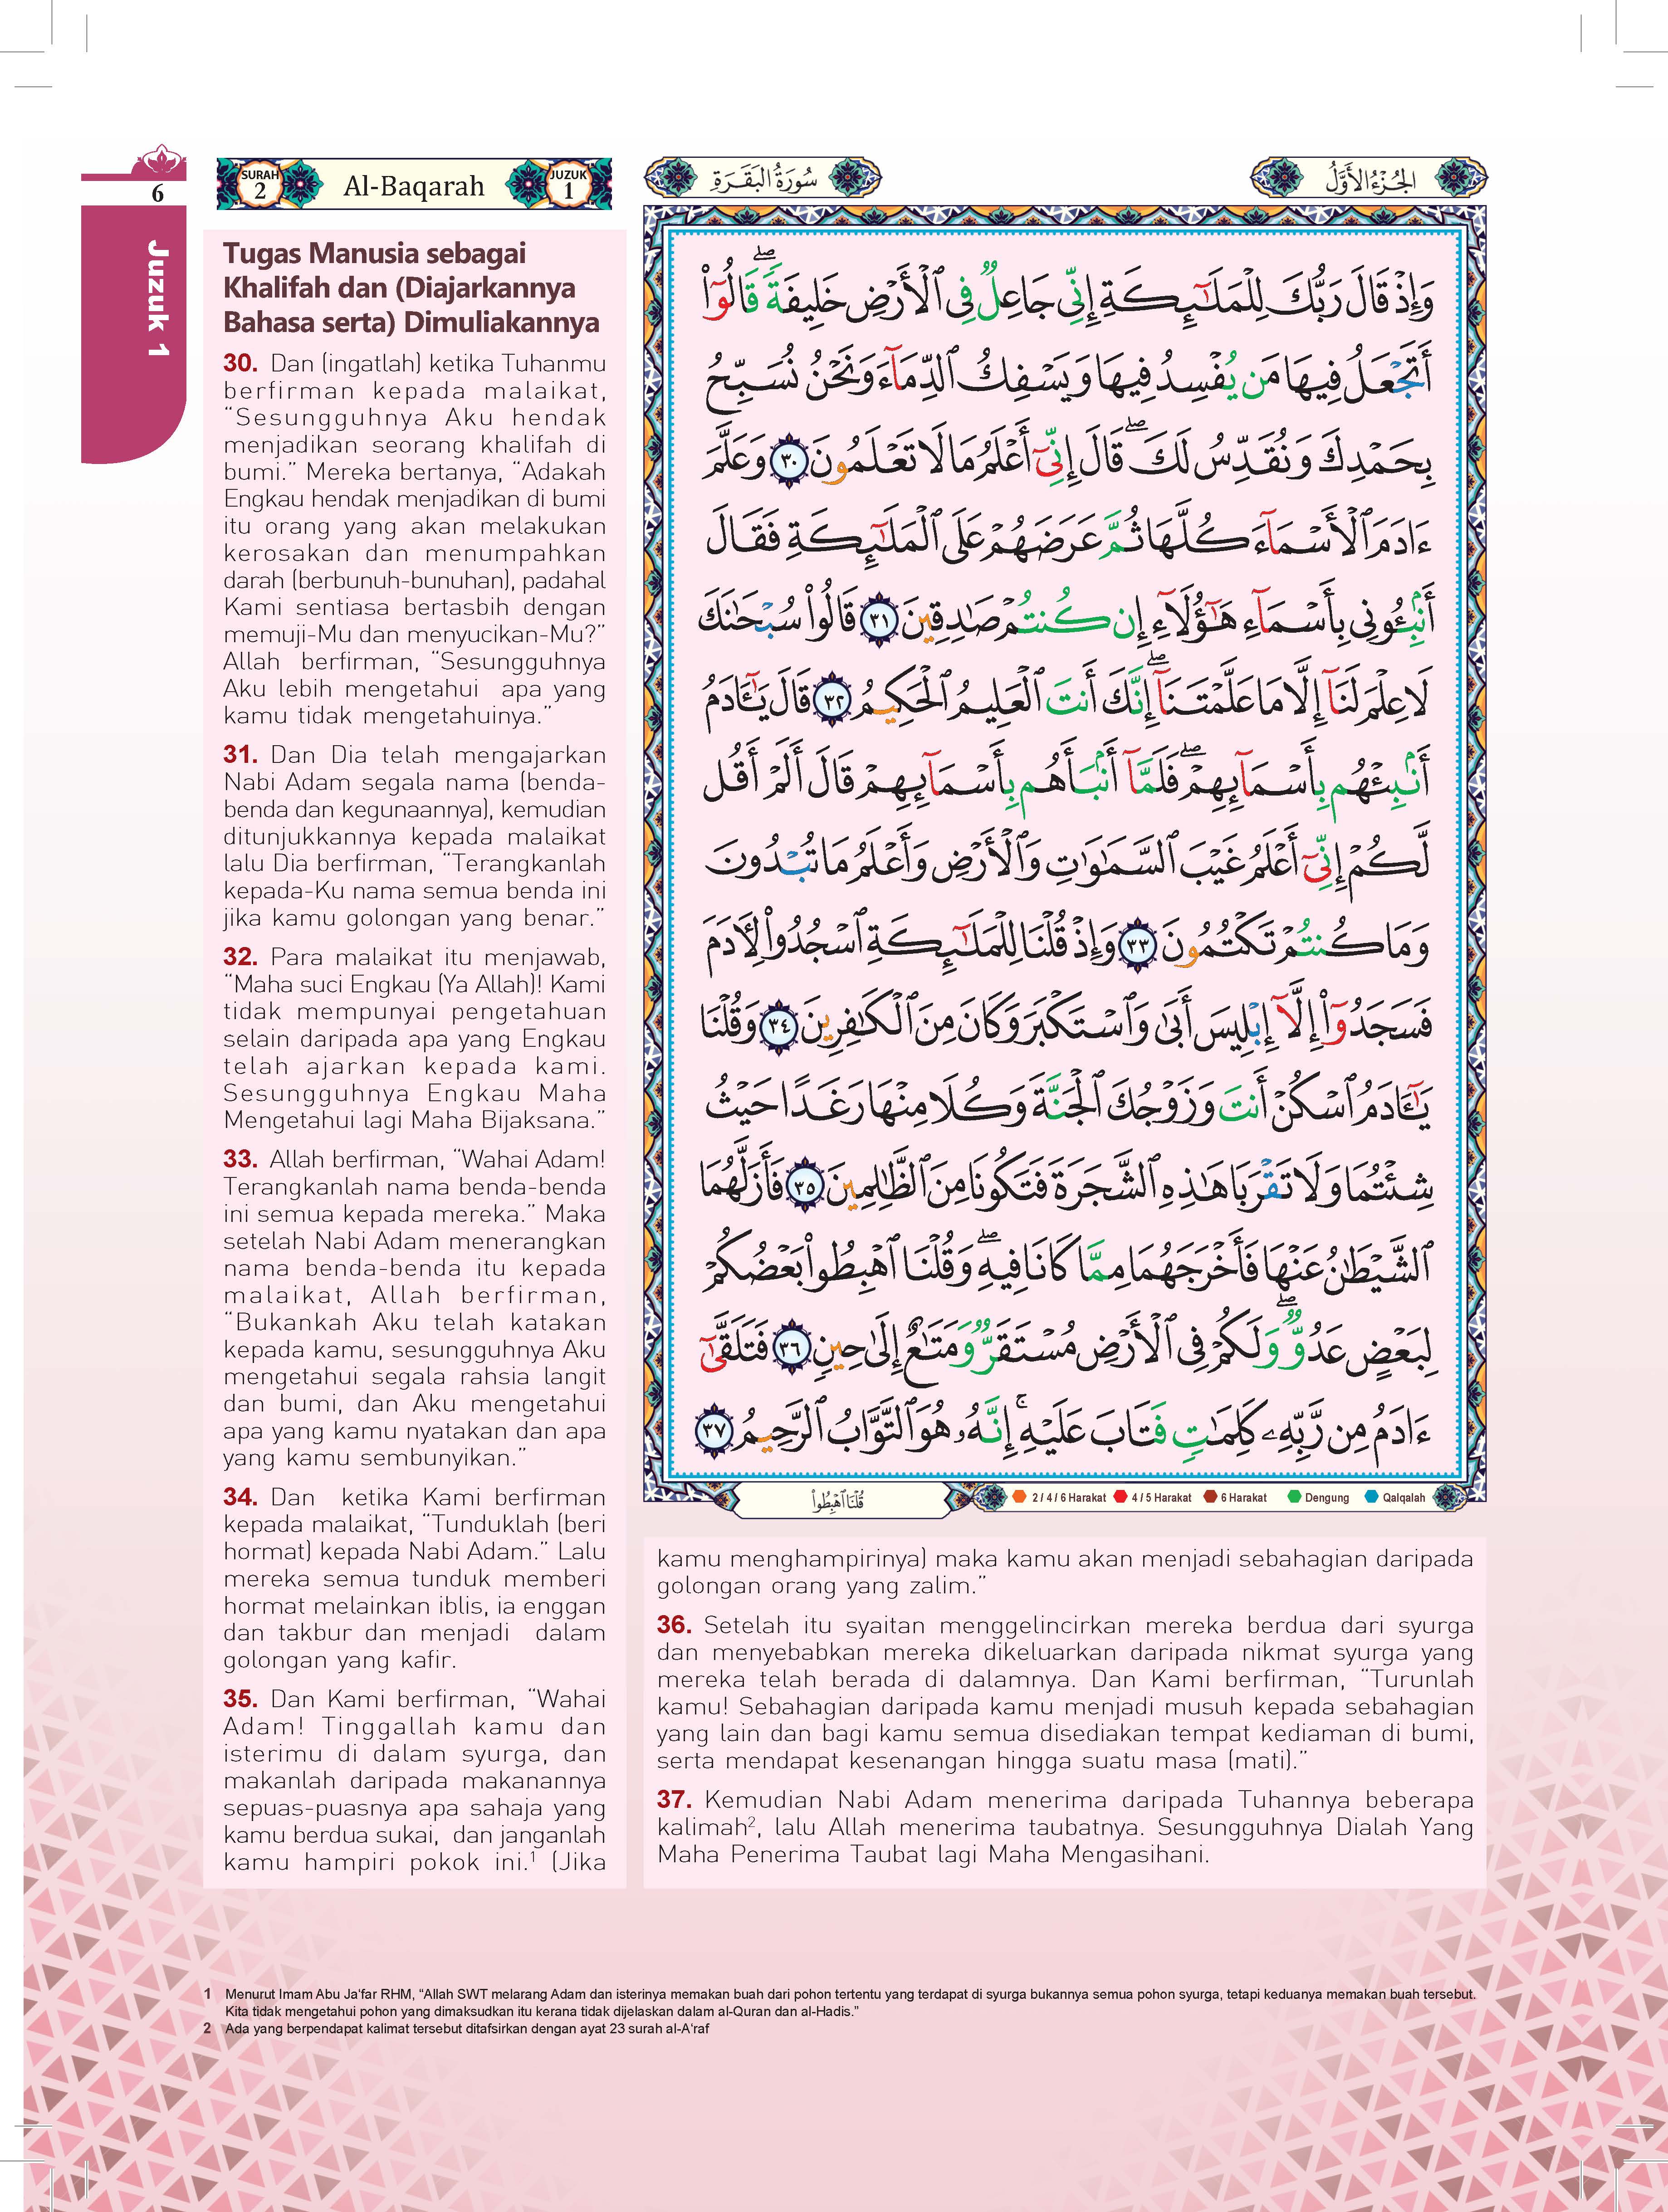 6
Juzuk 1
SURAH
2
Al-Baqarah
JUZUK
1
سُورَةُ الْبَقَرَةِ
الْجُزْءُ الْأَوَّلُ
Tugas Manusia sebagai
Khalifah dan (Diajarkannya
Bahasa serta) Dimuliakannya
30. Dan (ingatlah) ketika Tuhanmu
berfirman kepada malaikat,
“Sesungguhnya Aku hendak
menjadikan seorang khalifah di
bumi.” Mereka bertanya, “Adakah
Engkau hendak menjadikan di bumi
itu orang yang akan melakukan
kerosakan dan menumpahkan
darah (berbunuh-bunuhan), padahal
Kami sentiasa bertasbih dengan
memuji-Mu dan menyucikan-Mu?”
Allah berfirman, “Sesungguhnya
Aku lebih mengetahui apa yang
kamu tidak mengetahuinya.”
31. Dan Dia telah mengajarkan
Nabi Adam segala nama (benda-
benda dan kegunaannya), kemudian
ditunjukkannya kepada malaikat
lalu Dia berfirman, “Terangkanlah
kepada-Ku nama semua benda ini
jika kamu golongan yang benar.”
32. Para malaikat itu menjawab,
“Maha suci Engkau (Ya Allah)! Kami
tidak mempunyai pengetahuan
selain daripada apa yang Engkau
telah ajarkan kepada kami.
Sesungguhnya Engkau Maha
Mengetahui lagi Maha Bijaksana.”
33. Allah berfirman, “Wahai Adam!
Terangkanlah nama benda-benda
ini semua kepada mereka.” Maka
setelah Nabi Adam menerangkan
nama benda-benda itu kepada
malaikat, Allah berfirman,
“Bukankah Aku telah katakan
kepada kamu, sesungguhnya Aku
mengetahui segala rahsia langit
dan bumi, dan Aku mengetahui
apa yang kamu nyatakan dan apa
yang kamu sembunyikan.”
34. Dan ketika Kami berfirman
kepada malaikat, “Tunduklah (beri
hormat) kepada Nabi Adam.” Lalu
mereka semua tunduk memberi
hormat melainkan iblis, ia enggan
dan takbur dan menjadi dalam
golongan yang kafir.
35. Dan Kami berfirman, “Wahai
Adam! Tinggallah kamu dan
isterimu di dalam syurga, dan
makanlah daripada makanannya
sepuas-puasnya apa sahaja yang
kamu berdua sukai, dan janganlah
kamu hampiri pokok ini.¹ (Jika
وَإِذْ قَالَ رَبُّكَ لِلْمَلَـٰٓئِكَةِ إِنِّى جَاعِلٌ فِى ٱلْأَرْضِ خَلِيفَةً ۖ قَالُوٓا۟
أَتَجْعَلُ فِيهَا مَن يُفْسِدُ فِيهَا وَيَسْفِكُ ٱلدِّمَآءَ وَنَحْنُ نُسَبِّحُ
بِحَمْدِكَ وَنُقَدِّسُ لَكَ ۖ قَالَ إِنِّىٓ أَعْلَمُ مَا لَا تَعْلَمُونَ ٣٠ وَعَلَّمَ
ءَادَمَ ٱلْأَسْمَآءَ كُلَّهَا ثُمَّ عَرَضَهُمْ عَلَى ٱلْمَلَـٰٓئِكَةِ فَقَالَ
أَنۢبِـُٔونِى بِأَسْمَآءِ هَـٰٓؤُلَآءِ إِن كُنتُمْ صَـٰدِقِينَ ٣١ قَالُوا۟ سُبْحَـٰنَكَ
لَا عِلْمَ لَنَآ إِلَّا مَا عَلَّمْتَنَآ ۖ إِنَّكَ أَنتَ ٱلْعَلِيمُ ٱلْحَكِيمُ ٣٢ قَالَ يَـٰٓـَٔادَمُ
أَنۢبِئْهُم بِأَسْمَآئِهِمْ ۖ فَلَمَّآ أَنۢبَأَهُم بِأَسْمَآئِهِمْ قَالَ أَلَمْ أَقُل
لَّكُمْ إِنِّىٓ أَعْلَمُ غَيْبَ ٱلسَّمَـٰوَٰتِ وَٱلْأَرْضِ وَأَعْلَمُ مَا تُبْدُونَ
وَمَا كُنتُمْ تَكْتُمُونَ ٣٣ وَإِذْ قُلْنَا لِلْمَلَـٰٓئِكَةِ ٱسْجُدُوا۟ لِـَٔادَمَ
فَسَجَدُوٓا۟ إِلَّآ إِبْلِيسَ أَبَىٰ وَٱسْتَكْبَرَ وَكَانَ مِنَ ٱلْكَـٰفِرِينَ ٣٤ وَقُلْنَا
يَـٰٓـَٔادَمُ ٱسْكُنْ أَنتَ وَزَوْجُكَ ٱلْجَنَّةَ وَكُلَا مِنْهَا رَغَدًا حَيْثُ
شِئْتُمَا وَلَا تَقْرَبَا هَـٰذِهِ ٱلشَّجَرَةَ فَتَكُونَا مِنَ ٱلظَّـٰلِمِينَ ٣٥ فَأَزَلَّهُمَا
ٱلشَّيْطَـٰنُ عَنْهَا فَأَخْرَجَهُمَا مِمَّا كَانَا فِيهِ ۖ وَقُلْنَا ٱهْبِطُوا۟ بَعْضُكُمْ
لِبَعْضٍ عَدُوٌّ ۖ وَلَكُمْ فِى ٱلْأَرْضِ مُسْتَقَرٌّ وَمَتَـٰعٌ إِلَىٰ حِينٍ ٣٦ فَتَلَقَّىٰٓ
ءَادَمُ مِن رَّبِّهِۦ كَلِمَـٰتٍ فَتَابَ عَلَيْهِ ۚ إِنَّهُۥ هُوَ ٱلتَّوَّابُ ٱلرَّحِيمُ ٣٧
قُلْنَا ٱهْبِطُوا۟
2 / 4 / 6 Harakat 4 / 5 Harakat 6 Harakat Dengung Qalqalah
kamu menghampirinya) maka kamu akan menjadi sebahagian daripada
golongan orang yang zalim.”
36. Setelah itu syaitan menggelincirkan mereka berdua dari syurga
dan menyebabkan mereka dikeluarkan daripada nikmat syurga yang
mereka telah berada di dalamnya. Dan Kami berfirman, “Turunlah
kamu! Sebahagian daripada kamu menjadi musuh kepada sebahagian
yang lain dan bagi kamu semua disediakan tempat kediaman di bumi,
serta mendapat kesenangan hingga suatu masa (mati).”
37. Kemudian Nabi Adam menerima daripada Tuhannya beberapa
kalimah², lalu Allah menerima taubatnya. Sesungguhnya Dialah Yang
Maha Penerima Taubat lagi Maha Mengasihani.
1 Menurut Imam Abu Ja‘far RHM, “Allah SWT melarang Adam dan isterinya memakan buah dari pohon tertentu yang terdapat di syurga bukannya semua pohon syurga, tetapi keduanya memakan buah tersebut.
Kita tidak mengetahui pohon yang dimaksudkan itu kerana tidak dijelaskan dalam al-Quran dan al-Hadis.”
2 Ada yang berpendapat kalimat tersebut ditafsirkan dengan ayat 23 surah al-A‘raf